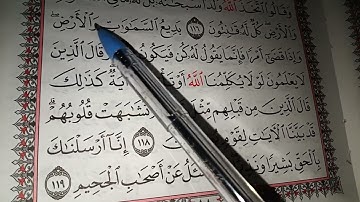 وَقَالُوا۟ ٱتَّخَذَ ٱللَّهُ وَلَدًا سُبْحَٰنَهُۥ بَل لَّهُۥ مَا فِى
وَٱلْأَرْضِ كُلٌّ لَّهُۥ قَٰنِتُونَ ١١٦ بَدِيعُ ٱلسَّمَٰوَٰتِ وَٱلْأَرْضِ
وَإِذَا قَضَىٰٓ أَمْرًا فَإِنَّمَا يَقُولُ لَهُۥ كُن فَيَكُونُ قَالَ ٱلَّذِينَ
لَا يَعْلَمُونَ لَوْلَا يُكَلِّمُنَا ٱللَّهُ أَوْ ءَايَةٌ كَذَٰلِكَ
قَالَ ٱلَّذِينَ مِن قَبْلِهِم مِّثْلَ تَشَٰبَهَتْ قُلُوبُهُمْ
قَدْ بَيَّنَّا ٱلْءَايَٰتِ لِقَوْمٍ ١١٨ إِنَّآ أَرْسَلْنَٰكَ
بِٱلْحَقِّ بَشِيرًا وَنَذِيرًا تُسْـَٔلُ عَنْ أَصْحَٰبِ ٱلْجَحِيمِ ١١٩